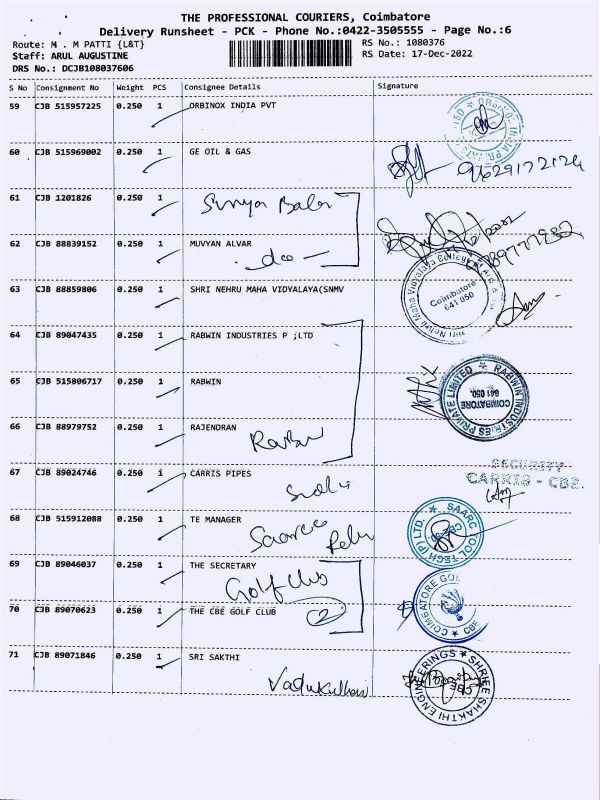 THE PROFESSIONAL COURIERS, Coimbatore
Delivery Runsheet - PCK - Phone No.:0422-3505555 - Page No.:6
Route: M . M PATTI {L&T} RS No.: 1080376
Staff: ARUL AUGUSTINE RS Date: 17-Dec-2022
DRS No.: DCJB108037606
S No Consignment No Weight PCS Consignee Details Signature
59 CJB 515957225 0.250 1 ORBINOX INDIA PVT
60 CJB 515969002 0.250 1 GE OIL & GAS
9629172124
61 CJB 1201826 0.250 1
Surya Bala
62 CJB 88839152 0.250 1 MUVYAN ALVAR
do
63 CJB 88859806 0.250 1 SHRI NEHRU MAHA VIDYALAYA(SNMV
Coimbatore
641 050
64 CJB 89047435 0.250 1 RABWIN INDUSTRIES P ;LTD
65 CJB 515806717 0.250 1 RABWIN
RABWIN INDUSTRIES PRIVATE LIMITED
COIMBATORE
641 050.
66 CJB 88979752 0.250 1 RAJENDRAN
67 CJB 89024746 0.250 1 CARRIS PIPES
SECURITY
CARRIS - CBE.
68 CJB 515912088 0.250 1 TE MANAGER
SAARC TOOL TECH (P) LTD.
CBE
69 CJB 89046037 0.250 1 THE SECRETARY
Golf club
70 CJB 89070623 0.250 1 THE CBE GOLF CLUB
(2)
COIMBATORE GOL
CBE
71 CJB 89071846 0.250 1 SRI SAKTHI
SHREE SHAKTHI ENGINEERINGS
CBE